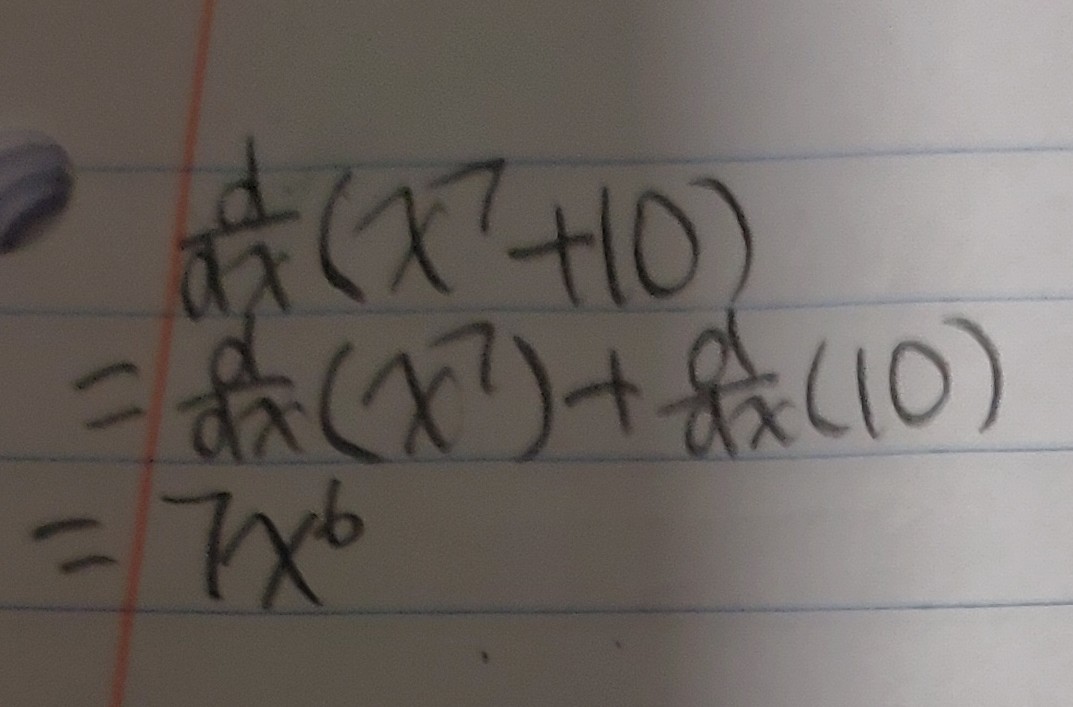 d/dx (x⁷+10)
= d/dx (x⁷) + d/dx (10)
= 7x⁶